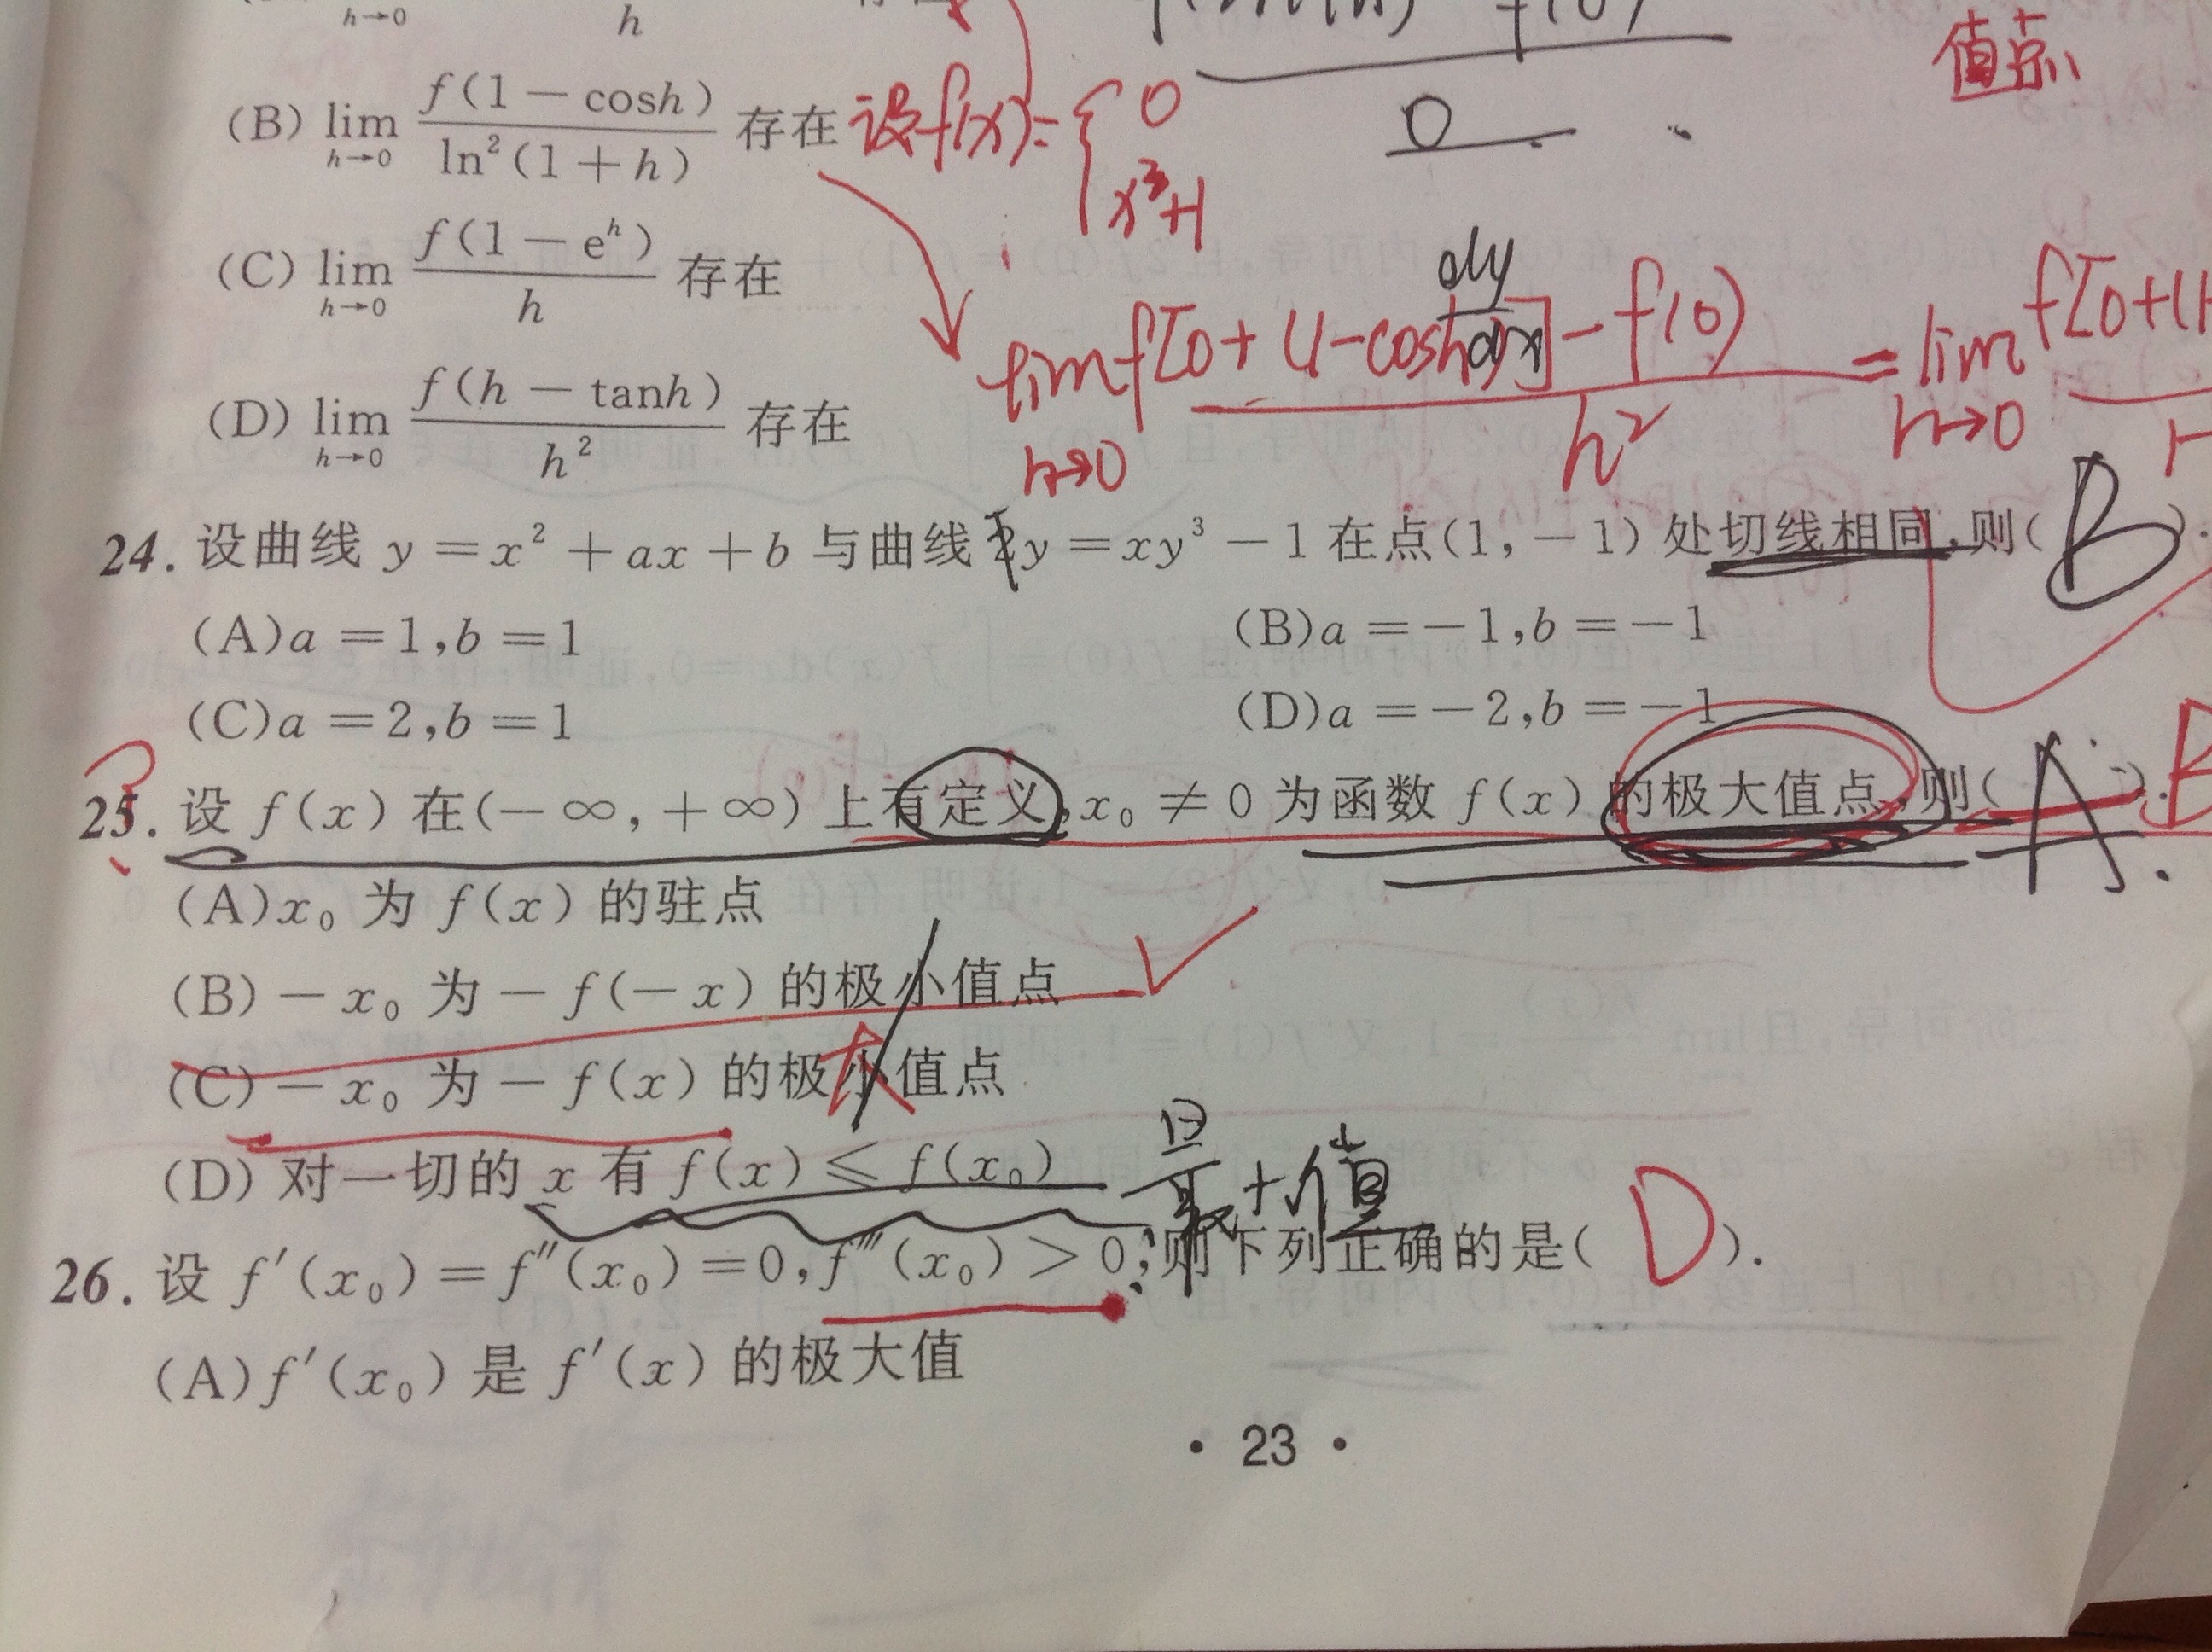 h→0 h
f(0)
值点
(B) lim h→0 f(1－cosh) / ln²(1＋h) 存在 设f(x)={0
x³+1
0
(C) lim h→0 f(1－eʰ) / h 存在
dy
dx
(D) lim h→0 f(h－tanh) / h² 存在
lim h→0 f[0+(1-cosh)]-f(0) / h² = lim h→0 f[0+(1
24. 设曲线 y＝x²＋ax＋b 与曲线 2y＝xy³－1 在点(1,－1) 处切线相同,则( B ).
(A)a＝1,b＝1 (B)a＝－1,b＝－1
(C)a＝2,b＝1 (D)a＝－2,b＝－1
25. 设 f(x) 在(－∞,＋∞) 上有定义,x₀≠0 为函数 f(x) 的极大值点,则( A ). B
(A)x₀ 为 f(x) 的驻点
(B)－x₀ 为－f(－x) 的极小值点
(C)－x₀ 为－f(x) 的极小值点
大
(D) 对一切的 x 有 f(x)≤f(x₀) 最大值
26. 设 f′(x₀)＝f″(x₀)＝0,f‴(x₀)＞0,则下列正确的是( D ).
(A)f′(x₀) 是 f′(x) 的极大值
· 23 ·